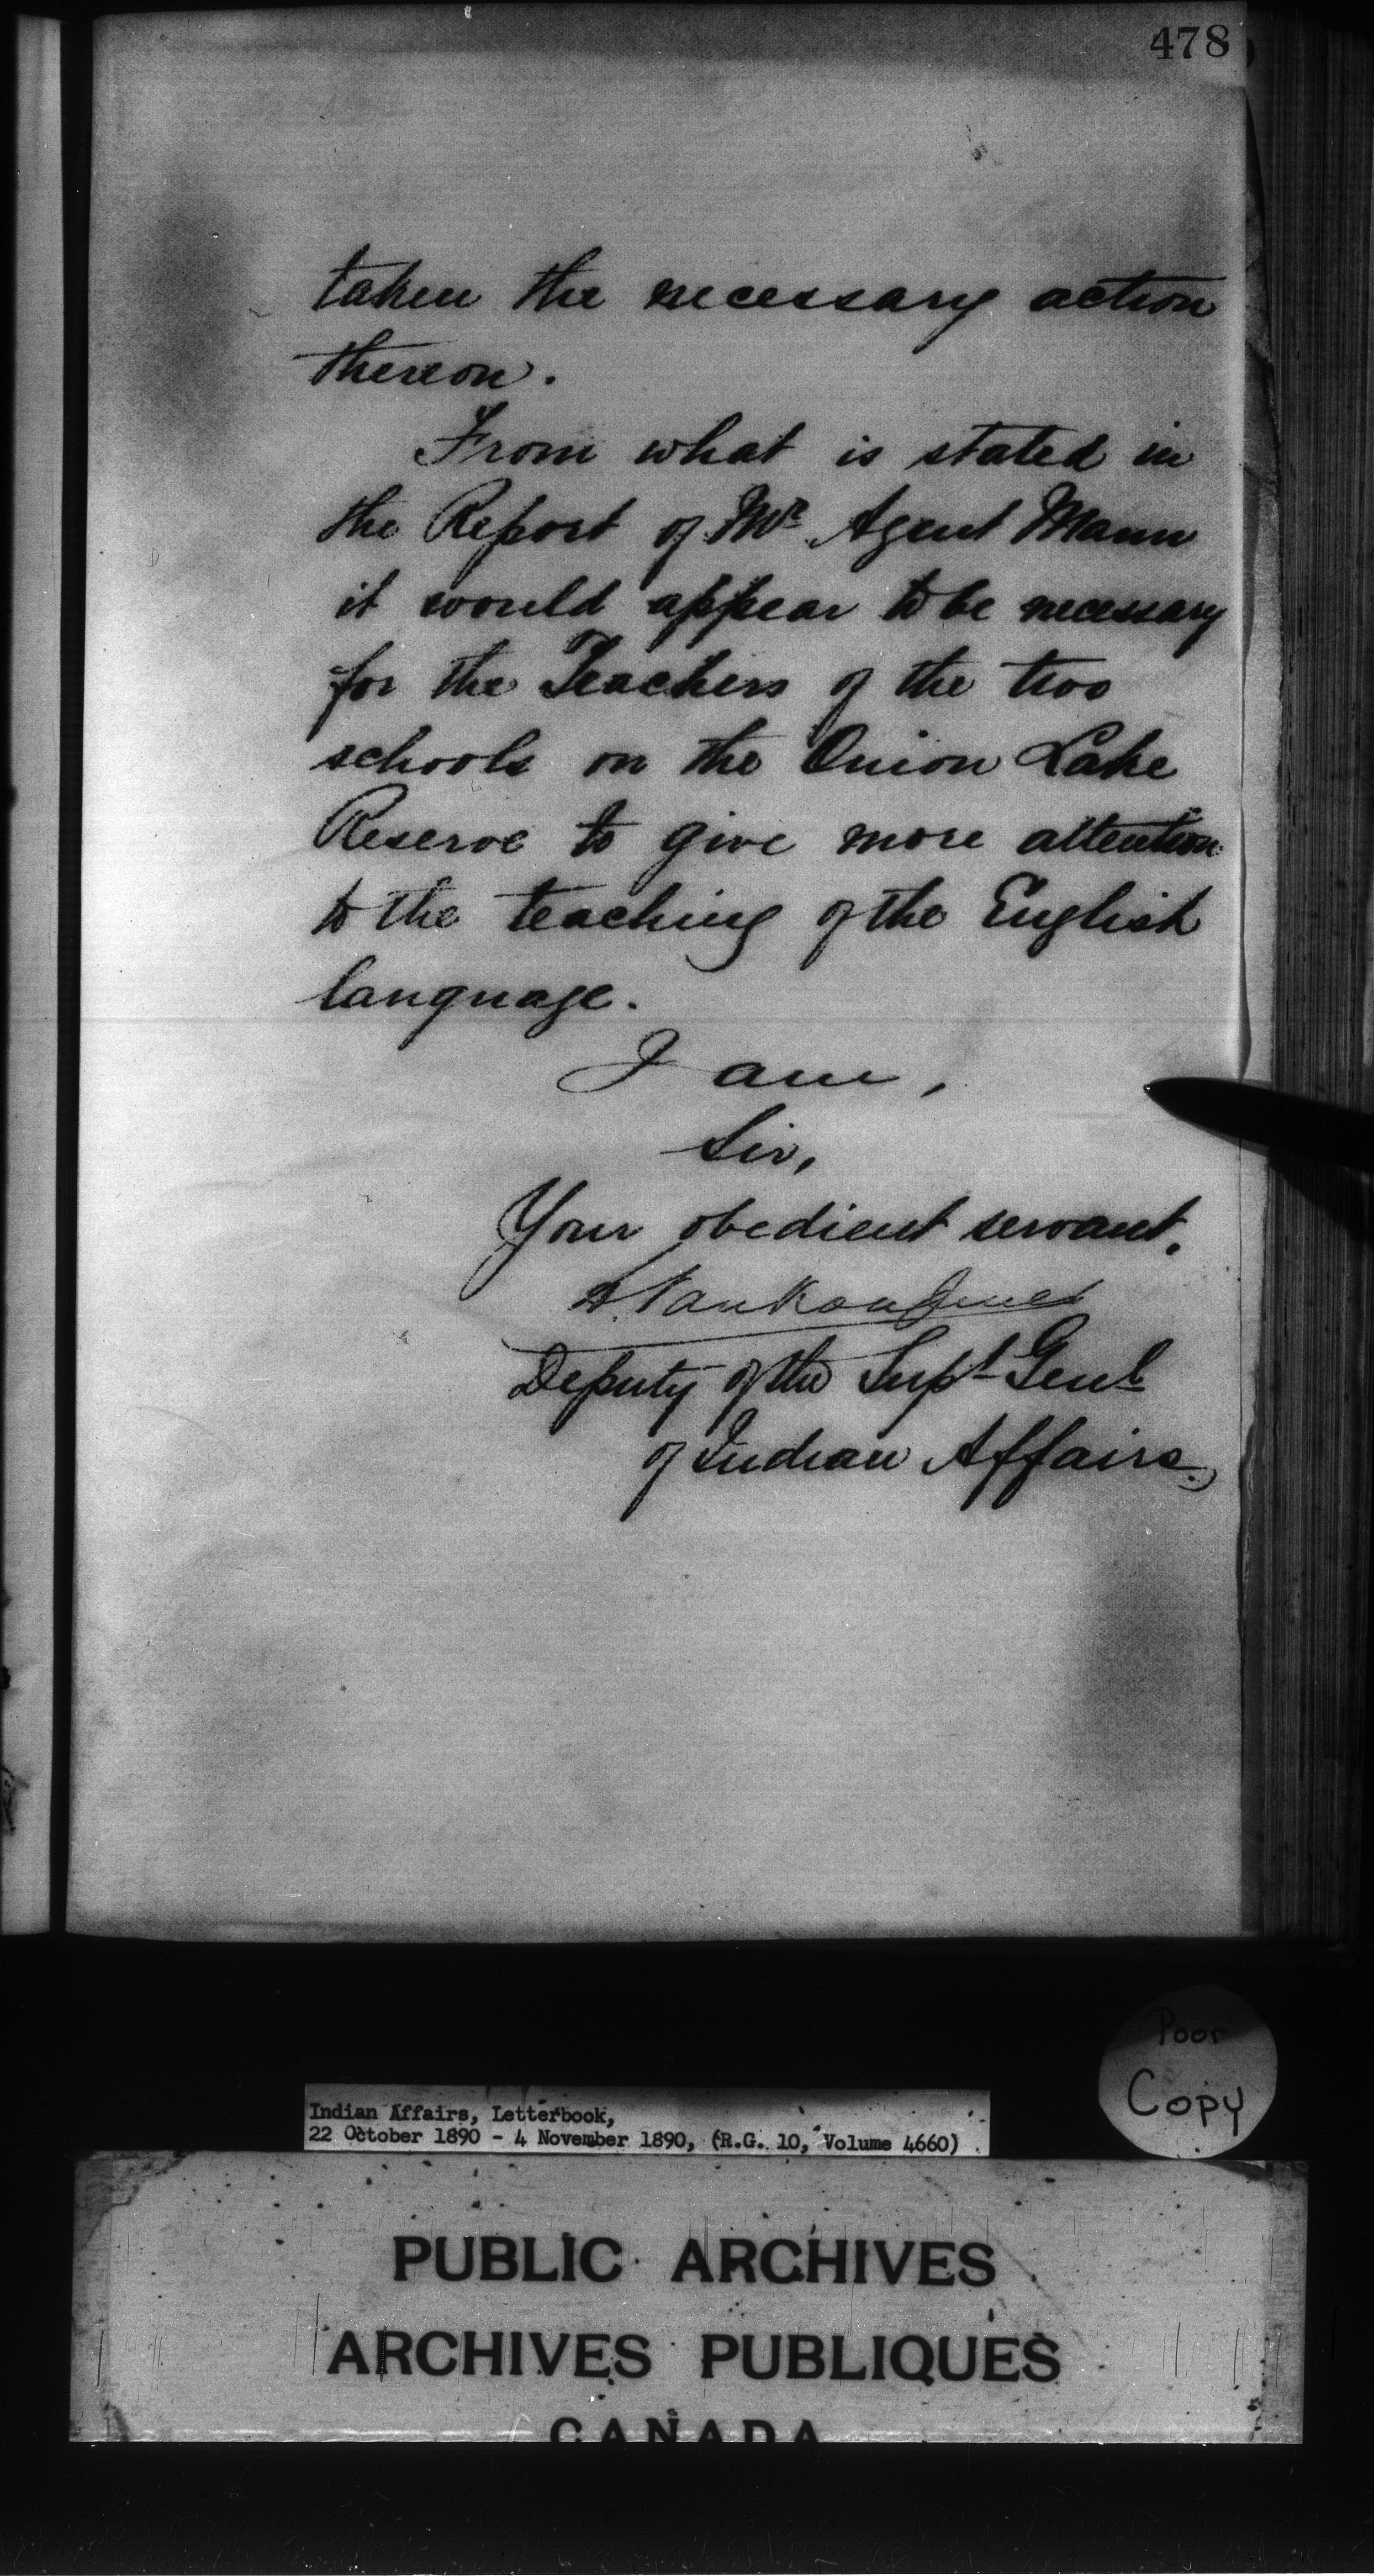 478
taken the necessary action
thereon.
From what is stated in
the Report of Mr. Agent Mann
it would appear to be necessary
for the Teachers of the two
schools on the Onion Lake
Reserve to give more attention
to the teaching of the English
language.
I am,
Sir,
Your obedient servant.
L. Vankoughnet
Deputy of the Supt Genl
of Indian Affairs.
Poor
Copy
Indian Affairs, Letterbook,
22 October 1890 - 4 November 1890, (R.G. 10, Volume 4660)
PUBLIC ARCHIVES
ARCHIVES PUBLIQUES
CANADA